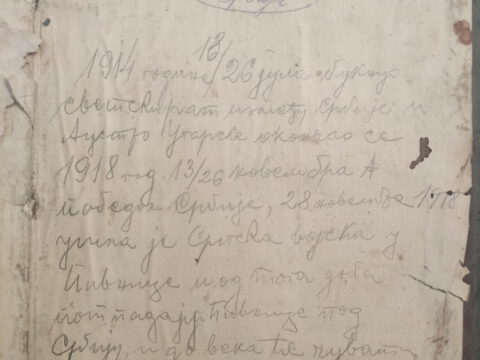 1914 године 13/26 јула објукнуо
светски рат између Србије и
Аустро Угарске окончао се
1918 год. 13/26 новембра А
победом Србије, 28 новембра 1918
ушла је Српска војска у
Пивнице и од тога доба
потпадају Пивнице под
Србију, и до века ће чувати